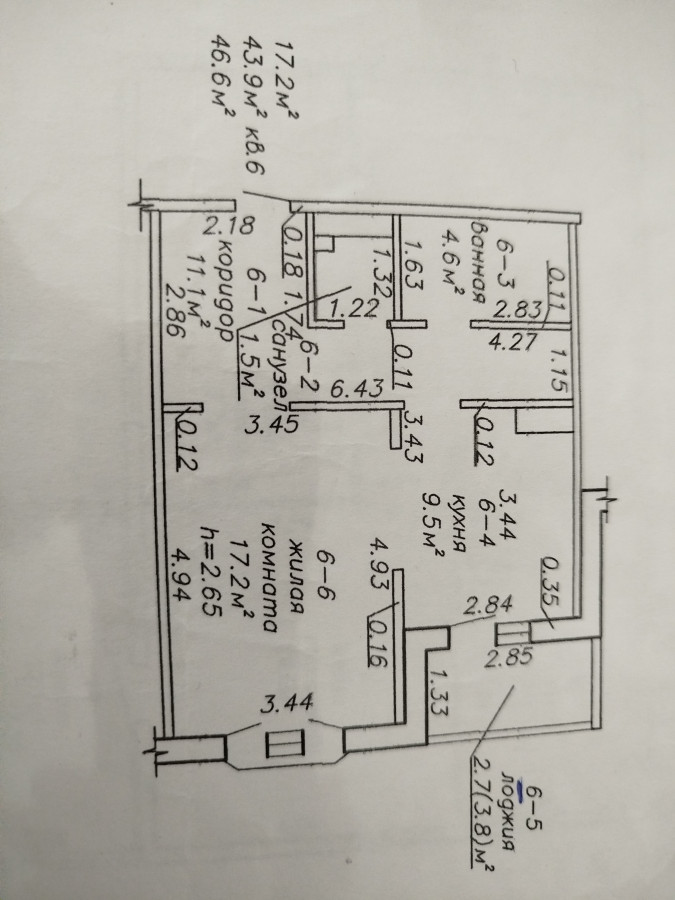 17.2м²
43.9м² кв.6
46.6м²
0.11
6-3
ванная
4.6м²
2.83
4.27
1.15
1.63
1.32
1.22
0.18
1.74
2.18
6-1
коридор
11.1м²
2.86
6-2
санузел
1.5м²
0.11
6.43
3.43
3.45
0.12
0.12
3.44
6-4
кухня
9.5м²
0.35
2.84
2.85
4.93
0.16
1.33
6-6
жилая
комната
17.2м²
h=2.65
4.94
3.44
6-5
лоджия
2.7(3.8)м²